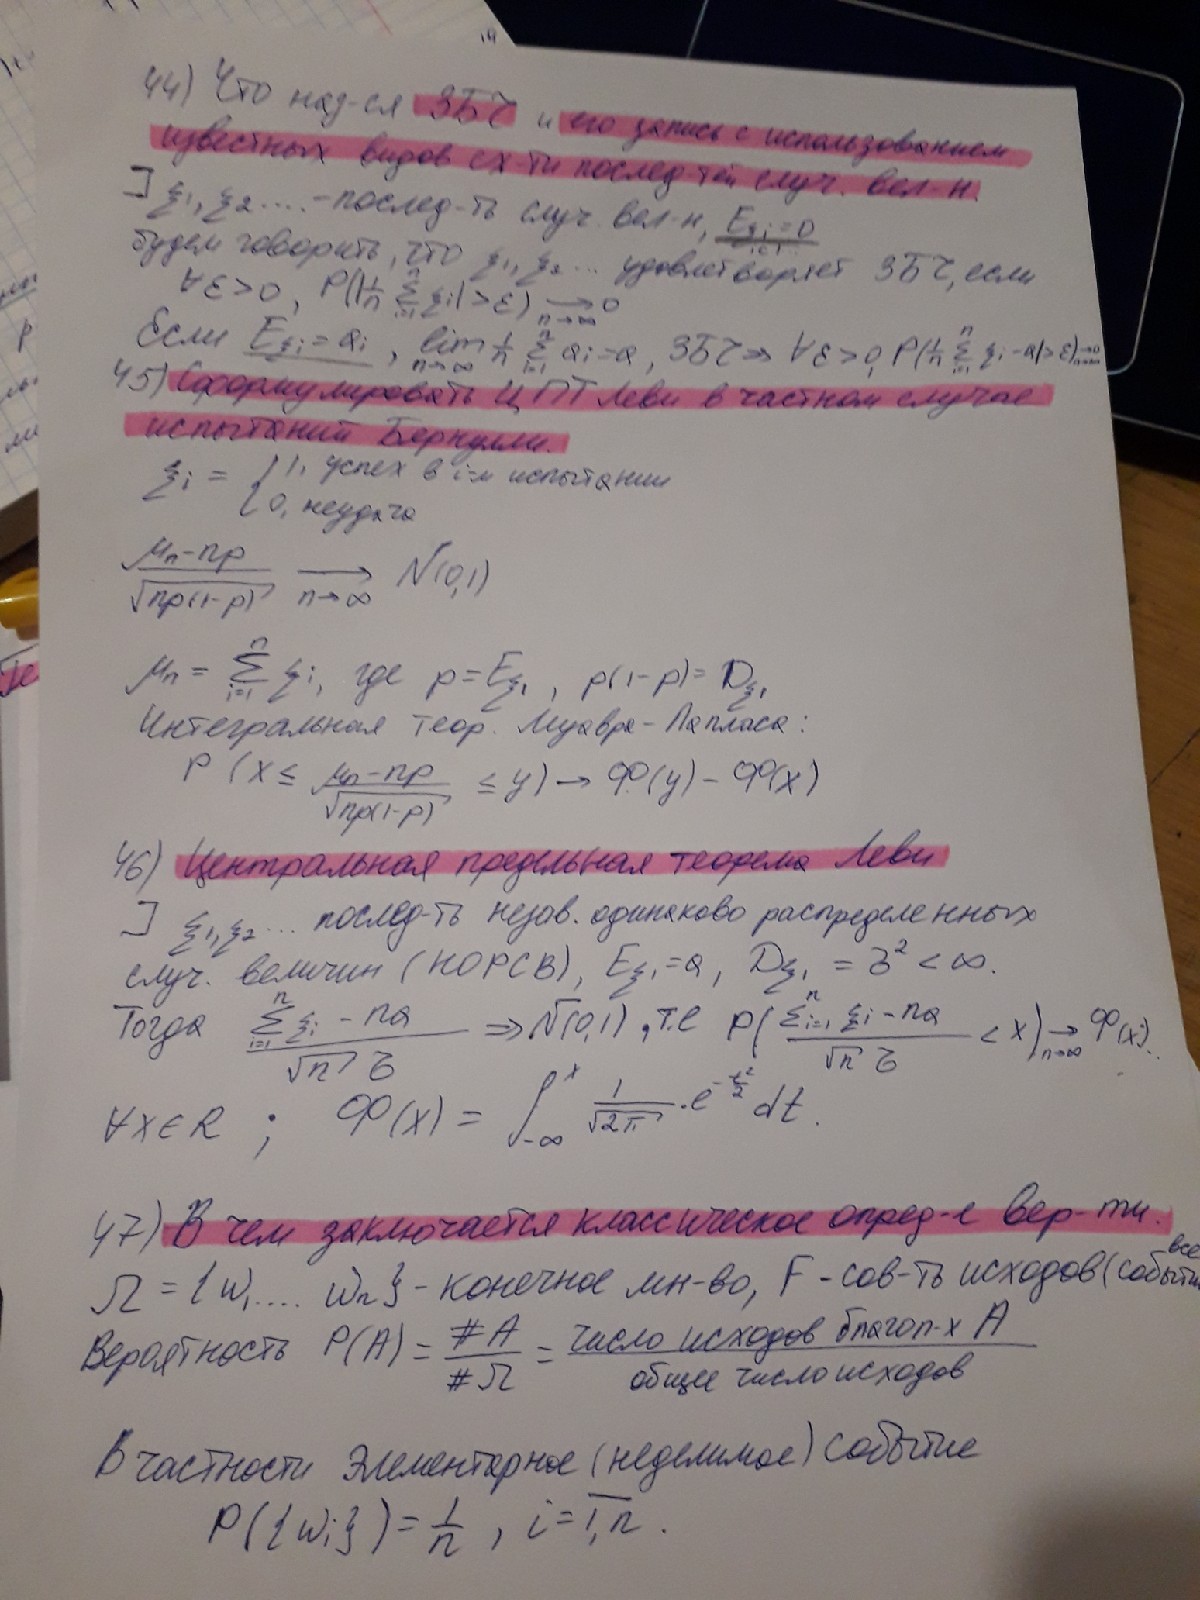 44) Что наз-ся ЗБЧ и его запись с использованием
известных видов сх-ти послед-тей случ. вел-н.
] ξ₁, ξ₂ .... - послед-ть случ. вел-н, Eξᵢ=0
будем говорить, что ξ₁, ξ₂... удовлетворяет ЗБЧ, если
∀ε>0, P(|1/n Σⁿᵢ₌₁ ξᵢ|>ε) →ₙ→∞ 0
Если Eξᵢ=aᵢ, lim n→∞ 1/n Σⁿᵢ₌₁ aᵢ=a, ЗБЧ ⇒ ∀ε>0, P(1/n Σⁿᵢ₌₁ ξᵢ-a|>ε) →ₙ→∞ 0
45) Сформулировать ЦПТ Леви в частном случае
испытаний Бернулли.
ξᵢ = { 1, успех в i-м испытании
0, неудача
(μₙ-np)/√(np(1-p)) →ₙ→∞ N(0,1)
μₙ= Σⁿᵢ₌₁ ξᵢ, где p=Eξ₁, p(1-p)=Dξ₁
Интегральная теор. Муавра-Лапласа:
P (x ≤ (μₙ-np)/√(np(1-p)) ≤ y) → Φ(y) - Φ(x)
46) Центральная предельная теорема Леви
] ξ₁, ξ₂... послед-ть незав. одинаково распределенных
случ. величин (НОРСВ), Eξ₁=a, Dξ₁ = σ² < ∞.
Тогда (Σⁿᵢ₌₁ ξᵢ - na)/(√n σ) ⇒ N(0,1), т.е P( (Σⁿᵢ₌₁ ξᵢ - na)/(√n σ) < x) →ₙ→∞ Φ(x).
∀x∈R ; Φ(x) = ∫₋∞ˣ 1/√(2π) · e^(-t²/2) dt.
47) В чем заключается классическое опред-е вер-ти.
Ω = {ω₁.... ωₙ} - конечное мн-во, F - сов-ть всех исходов (событи
Вероятность P(A) = #A/#Ω = число исходов благоп-х A / общее число исходов
В частности Элементарное (неделимое) событие
P({ωᵢ}) = 1/n, i = 1,n.